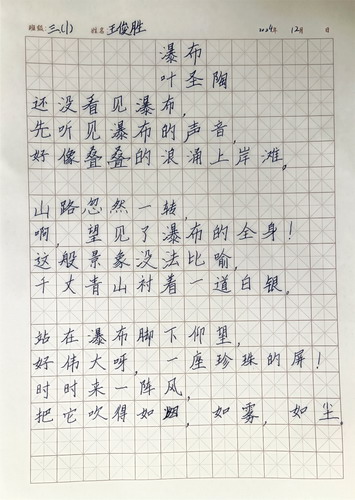 班级：三、(1) 姓名 王俊胜 2024年 12月 日
瀑布
叶圣陶
还没看见瀑布，
先听见瀑布的声音，
好像叠叠的浪涌上岸滩，
山路忽然一转，
啊，望见了瀑布的全身！
这般景象没法比喻，
千丈青山衬着一道白银，
站在瀑布脚下仰望，
好伟大呀，一座珍珠的屏！
时时来一阵风，
把它吹得如烟，如雾，如尘。